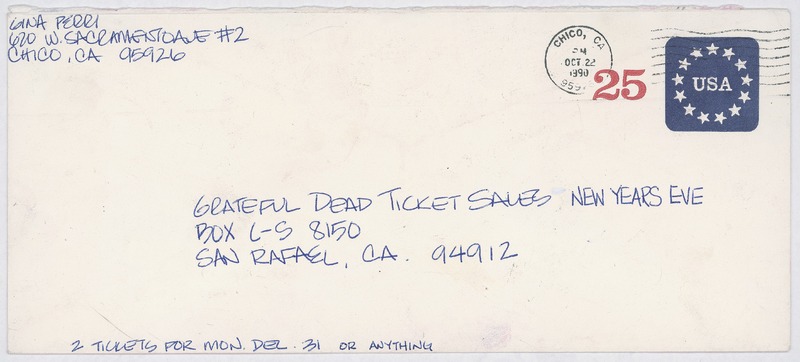 GINA PERRI
620 W. SACRAMENTO AVE #2
CHICO, CA 95926
CHICO, CA
PM
OCT 22
1990
25
USA
GRATEFUL DEAD TICKET SALES NEW YEARS EVE
BOX C-S 8150
SAN RAFAEL, CA. 94912
2 TICKETS FOR MON. DEC. 31 OR ANYTHING